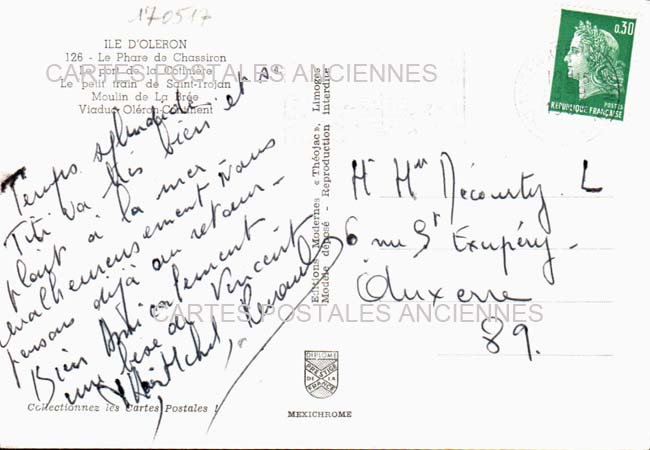 170517
ILE D'OLERON
126 - Le Phare de Chassiron
Le port de la Cotinière
Le petit train de Saint-Trojan
Moulin de La Brée
Viaduc Oléron-Continent
CARTES POSTALES ANCIENNES
Temps splendide
Titi va très bien et se
plaît à la mer
malheureusement nous
pensons déjà au retour-
Bien Amicalement
une bise de Vincent
Michel,
Collectionnez les Cartes Postales !
Editions Modernes « Théojac », Limoges
Modèle déposé - Reproduction interdite
CARTES POSTALES ANCIENNES
DIPLOME
PRESTIGE
DE LA
FRANCE
MEXICHROME
0,30
POSTES
REPUBLIQUE FRANÇAISE
M. Mme Décourty. L
6 rue St Exupéry-
Auxerre
89.